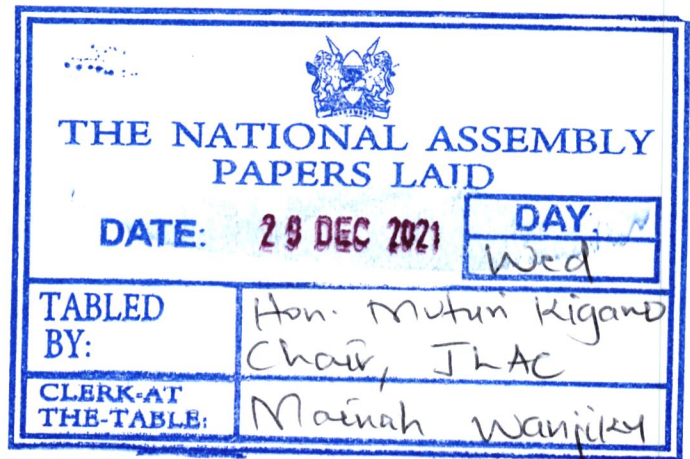 THE NATIONAL ASSEMBLY
PAPERS LAID
DATE: 29 DEC 2021
DAY
Wed
TABLED BY:
Hon. Muturi Kigano
Chair, JLAC
CLERK-AT THE-TABLE:
Mainah Wanjiku